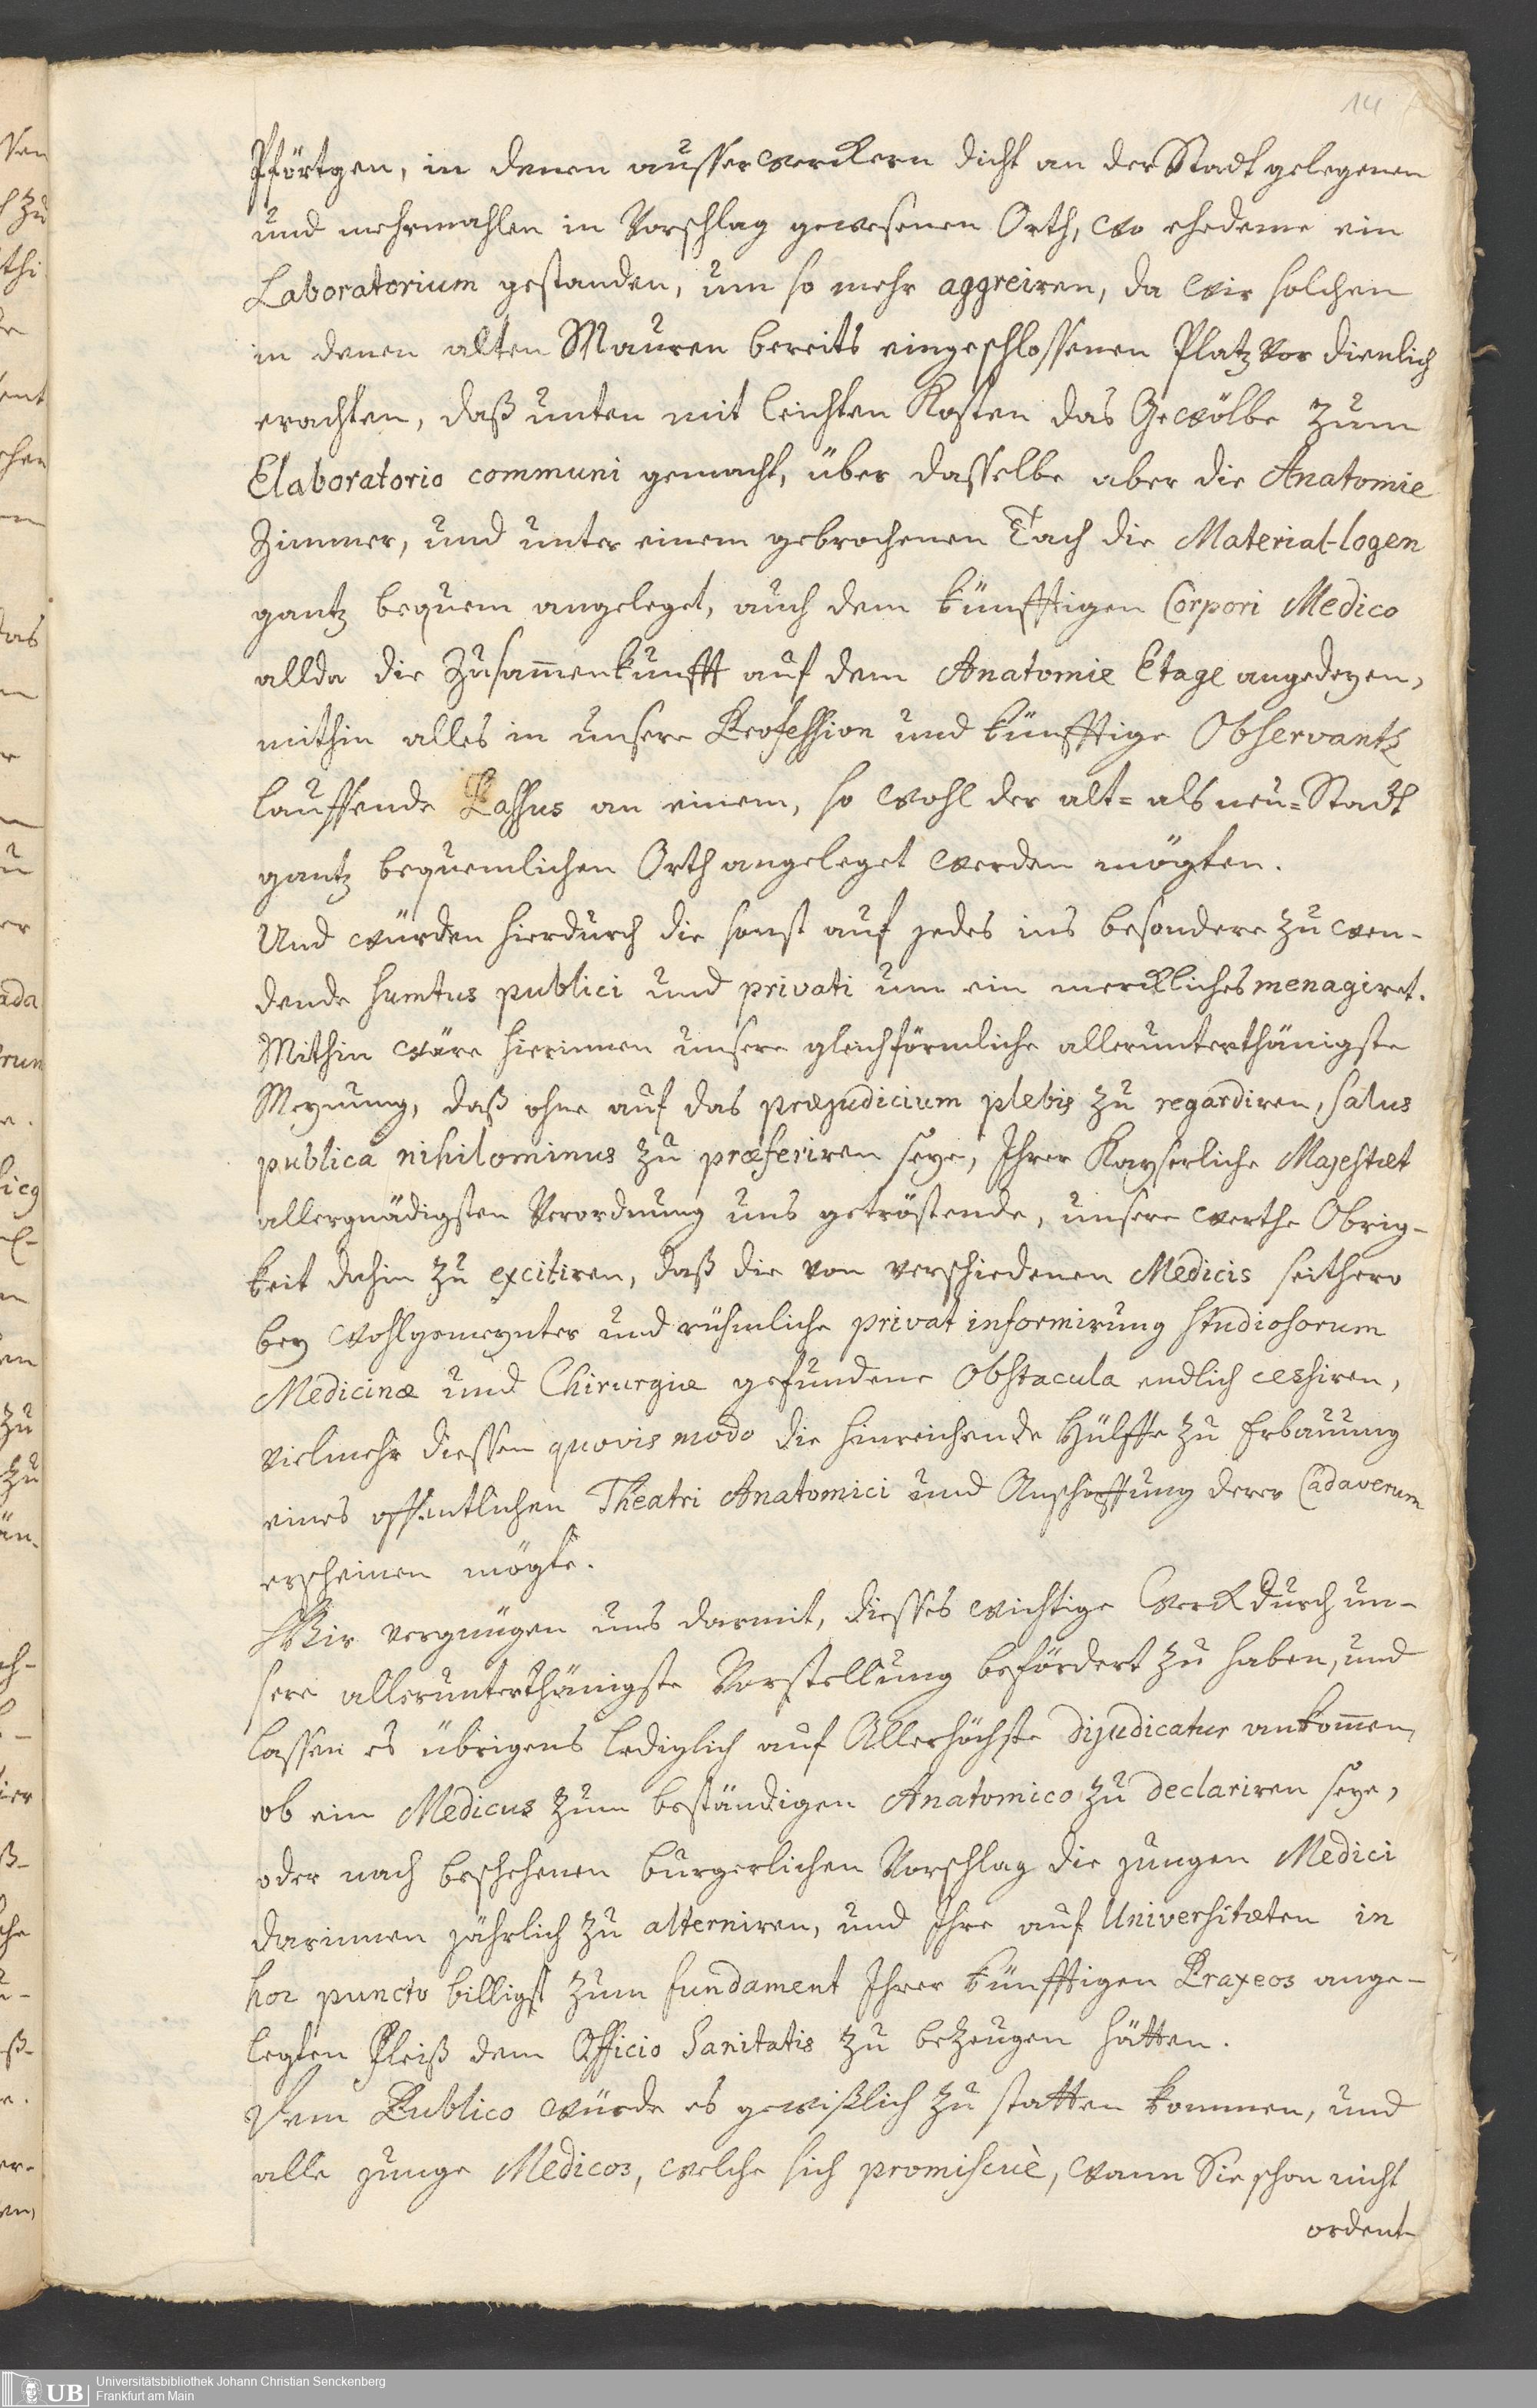 14
Pförtgen, in denen ausserwerckern dicht an der Stadt gelegenen
und mehrmahlen in Vorschlag gewesenen Orth, wo ehedeme ein
Laboratorium gestanden, um so mehr aggreiren, da wir solchen
in denen alten Mauren bereits eingeschlossenen Platz vor dienlich
erachten, daß unten mit leichten Kosten das Gewölbe zum
Elaboratorio communi gemacht, über dasselbe aber die Anatomie
Zimmer, und unter einem gebrochenen Tach die Material-logen
gantz bequem angeleget, auch dem künfftigen Corpori Medico
allda die Zusam̅enkunfft auf dem Anatomie Etage angedeyen,
mithin alles in unsere Profession und künfftige Observantz
lauffende Passus an einem, so wohl der alt= als neu=Stadt
gantz bequemlichen Orth angeleget werden mögten.
Und würden hierdurch die sonst auf jedes ins besondere zu wen-
dende sumtus publici und privati um ein merckliches menagiret.
Mithin wäre hierinnen unsere gleichförmliche allerunterthänigste
Meynung, daß ohne auf das præjudicium plebis zu regardiren, salus
publica nihilominus zu præferiren seye, Ihrer Kayserliche Majestæt
allergnädigsten Verordnung uns getröstende, unsere werthe Obrig-
keit dahin zu excitiren, daß die von verschiedenen Medicis seithero
bey wohlgemeynter und rühmliche privat informirung studiosorum
Medicinæ und Chirurgiæ gefundene Obstacula endlich cessiren,
vielmehr diessen quovis modo die hinreichende Hülffe zu Erbauung
eines offentlichen Theatri Anatomici und Anschaffung derer Cadaverum
erscheinen mögte.
Wir vergnügen uns darmit, diesses wichtige Werck durch un-
sere allerunterthänigste Vorstellung befördert zu haben, und
lassen es übrigens lediglich auf Allerhöchste Dijudicatur ankom̅en,
ob ein Medicus zum beständigen Anatomico zu declariren seye,
oder nach beschehenen burgerlichen Vorschlag die jungen Medici
darinnen jährlich zu alterniren, und Ihre auf Universitæten in
hoc puncto billigst zum fundament Ihrer künfftigen Praxeos ange-
legten Fleiß dem Officio Sanitatis zu bezeugen hätten.
Dem Publico würde es gewißlich zu statten kommen, und
alle junge Medicos, welche sich promiscuè, wann Sie schon nicht
ordent-
UB
Universitätsbibliothek Johann Christian Senckenberg
Frankfurt am Main